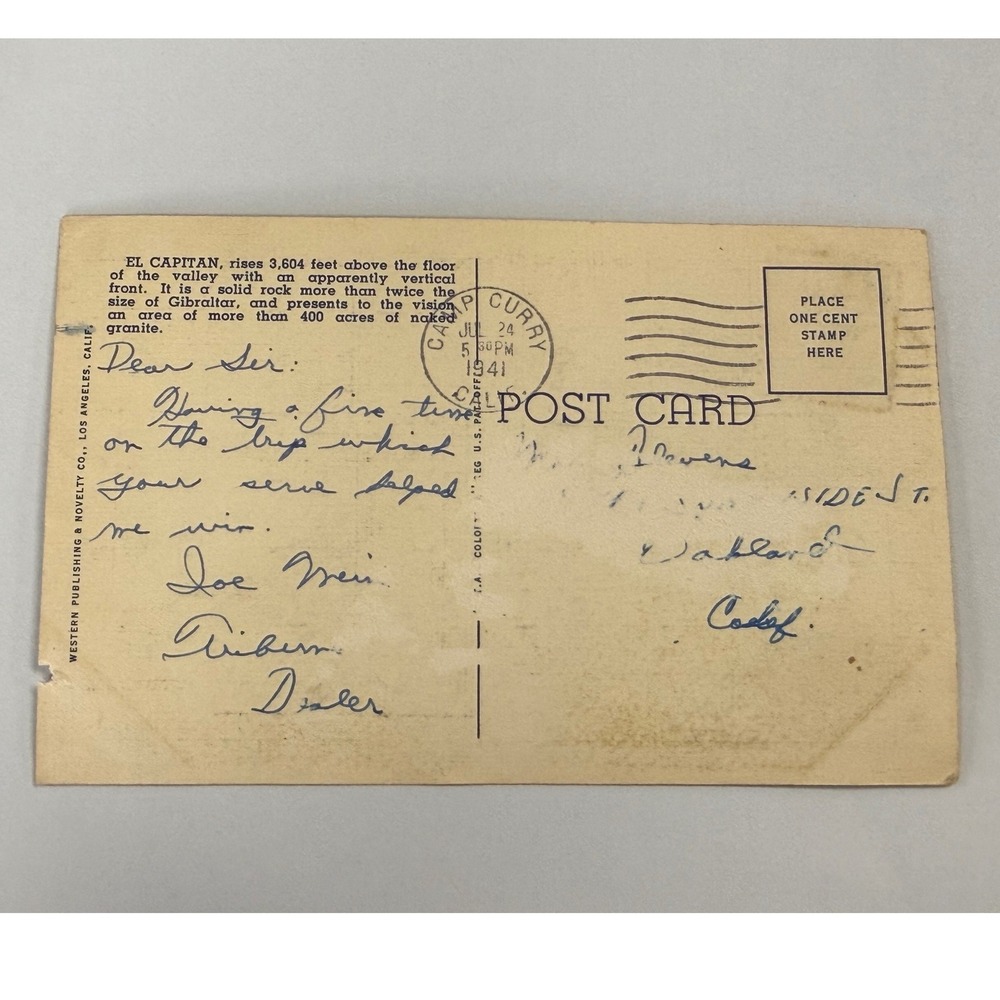 EL CAPITAN, rises 3,604 feet above the floor
of the valley with an apparently vertical
front. It is a solid rock more than twice the
size of Gibraltar, and presents to the vision
an area of more than 400 acres of naked
granite.
Dear Sir:
Having a fine time
on the trip which
your serve helped
me win.
Joe
Dealer
WESTERN PUBLISHING & NOVELTY CO., LOS ANGELES, CALIF.
CAMP CURRY
JUL 24
5 30 PM
1941
CALIF.
REG U.S. PAT OFF
PLACE
ONE CENT
STAMP
HERE
POST CARD
Oakland
Calif.